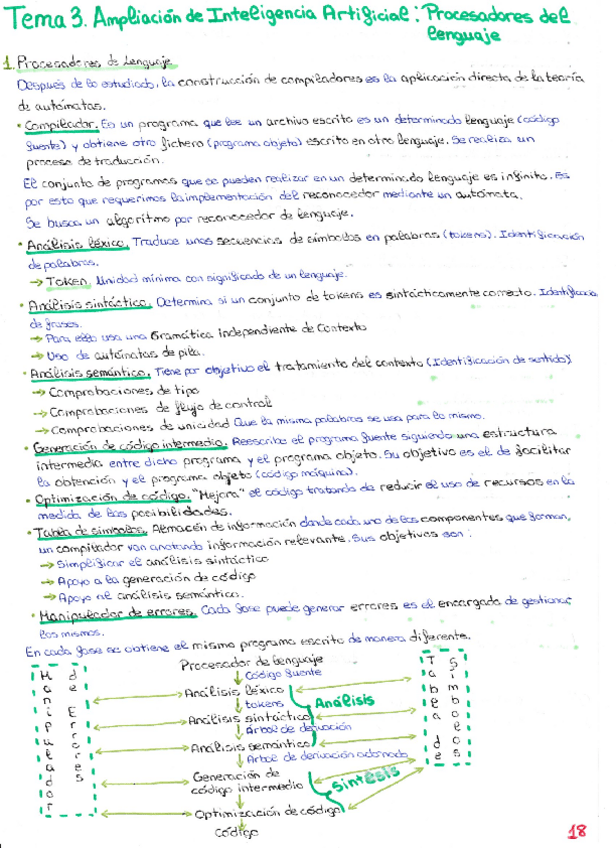 Tema 3. Ampliación de Inteligencia Artificial: Procesadores del
lenguaje
1. Procesadores de Lenguaje
Después de lo estudiado, la construcción de compiladores es la aplicación directa de la teoría
de autómatas.
• Compilador. Es un programa que lee un archivo escrito es un determinado lenguaje (código
fuente) y obtiene otro fichero (programa objeto) escrito en otro lenguaje. Se realiza un
proceso de traducción.
El conjunto de programas que se pueden realizar en un determinado lenguaje es infinito. Es
por esto que requerimos la implementación del reconocedor mediante un autómata.
Se busca un algoritmo por reconocedor de lenguaje.
• Análisis léxico. Traduce unas secuencias de símbolos en palabras (tokens). Identificación
de palabras.
→ Token. Unidad mínima con significado de un lenguaje.
• Análisis sintáctico. Determina si un conjunto de tokens es sintácticamente correcto. Identificación
de frases.
→ Para ello usa una Gramática independiente de Contexto
→ Uso de autómatas de pila.
• Análisis semántico. Tiene por objetivo el tratamiento del contexto (Identificación de sentido)
→ Comprobaciones de tipo
→ Comprobaciones de flujo de control
→ Comprobaciones de unicidad Que la misma palabras se usa para lo mismo.
• Generación de código intermedio. Reescribe el programa fuente siguiendo una estructura
intermedia entre dicho programa y el programa objeto. Su objetivo es el de facilitar
la obtención y el programa objeto (código máquina).
• Optimización de código. "Mejora" el código tratando de reducir el uso de recursos en la
medida de las posibilidades.
• Tabla de símbolos. Almacén de información donde cada uno de los componentes que forman,
un compilador van anotando información relevante. Sus objetivos son:
→ Simplificar el análisis sintáctico
→ Apoyo a la generación de código
→ Apoyo al análisis semántico.
• Manipulador de errores. Cada fase puede generar errores es el encargado de gestionar
los mismos.
En cada fase se obtiene el mismo programa escrito de manera diferente.
Procesador de lenguaje
Código fuente
Análisis léxico
tokens
Análisis
Análisis sintáctico
Árbol de derivación
Análisis semántico
Árbol de derivación adornado
Generación de
código intermedio
Síntesis
Optimización de código
Código
Manipulador
de Errores
Tabla de
Símbolos
18